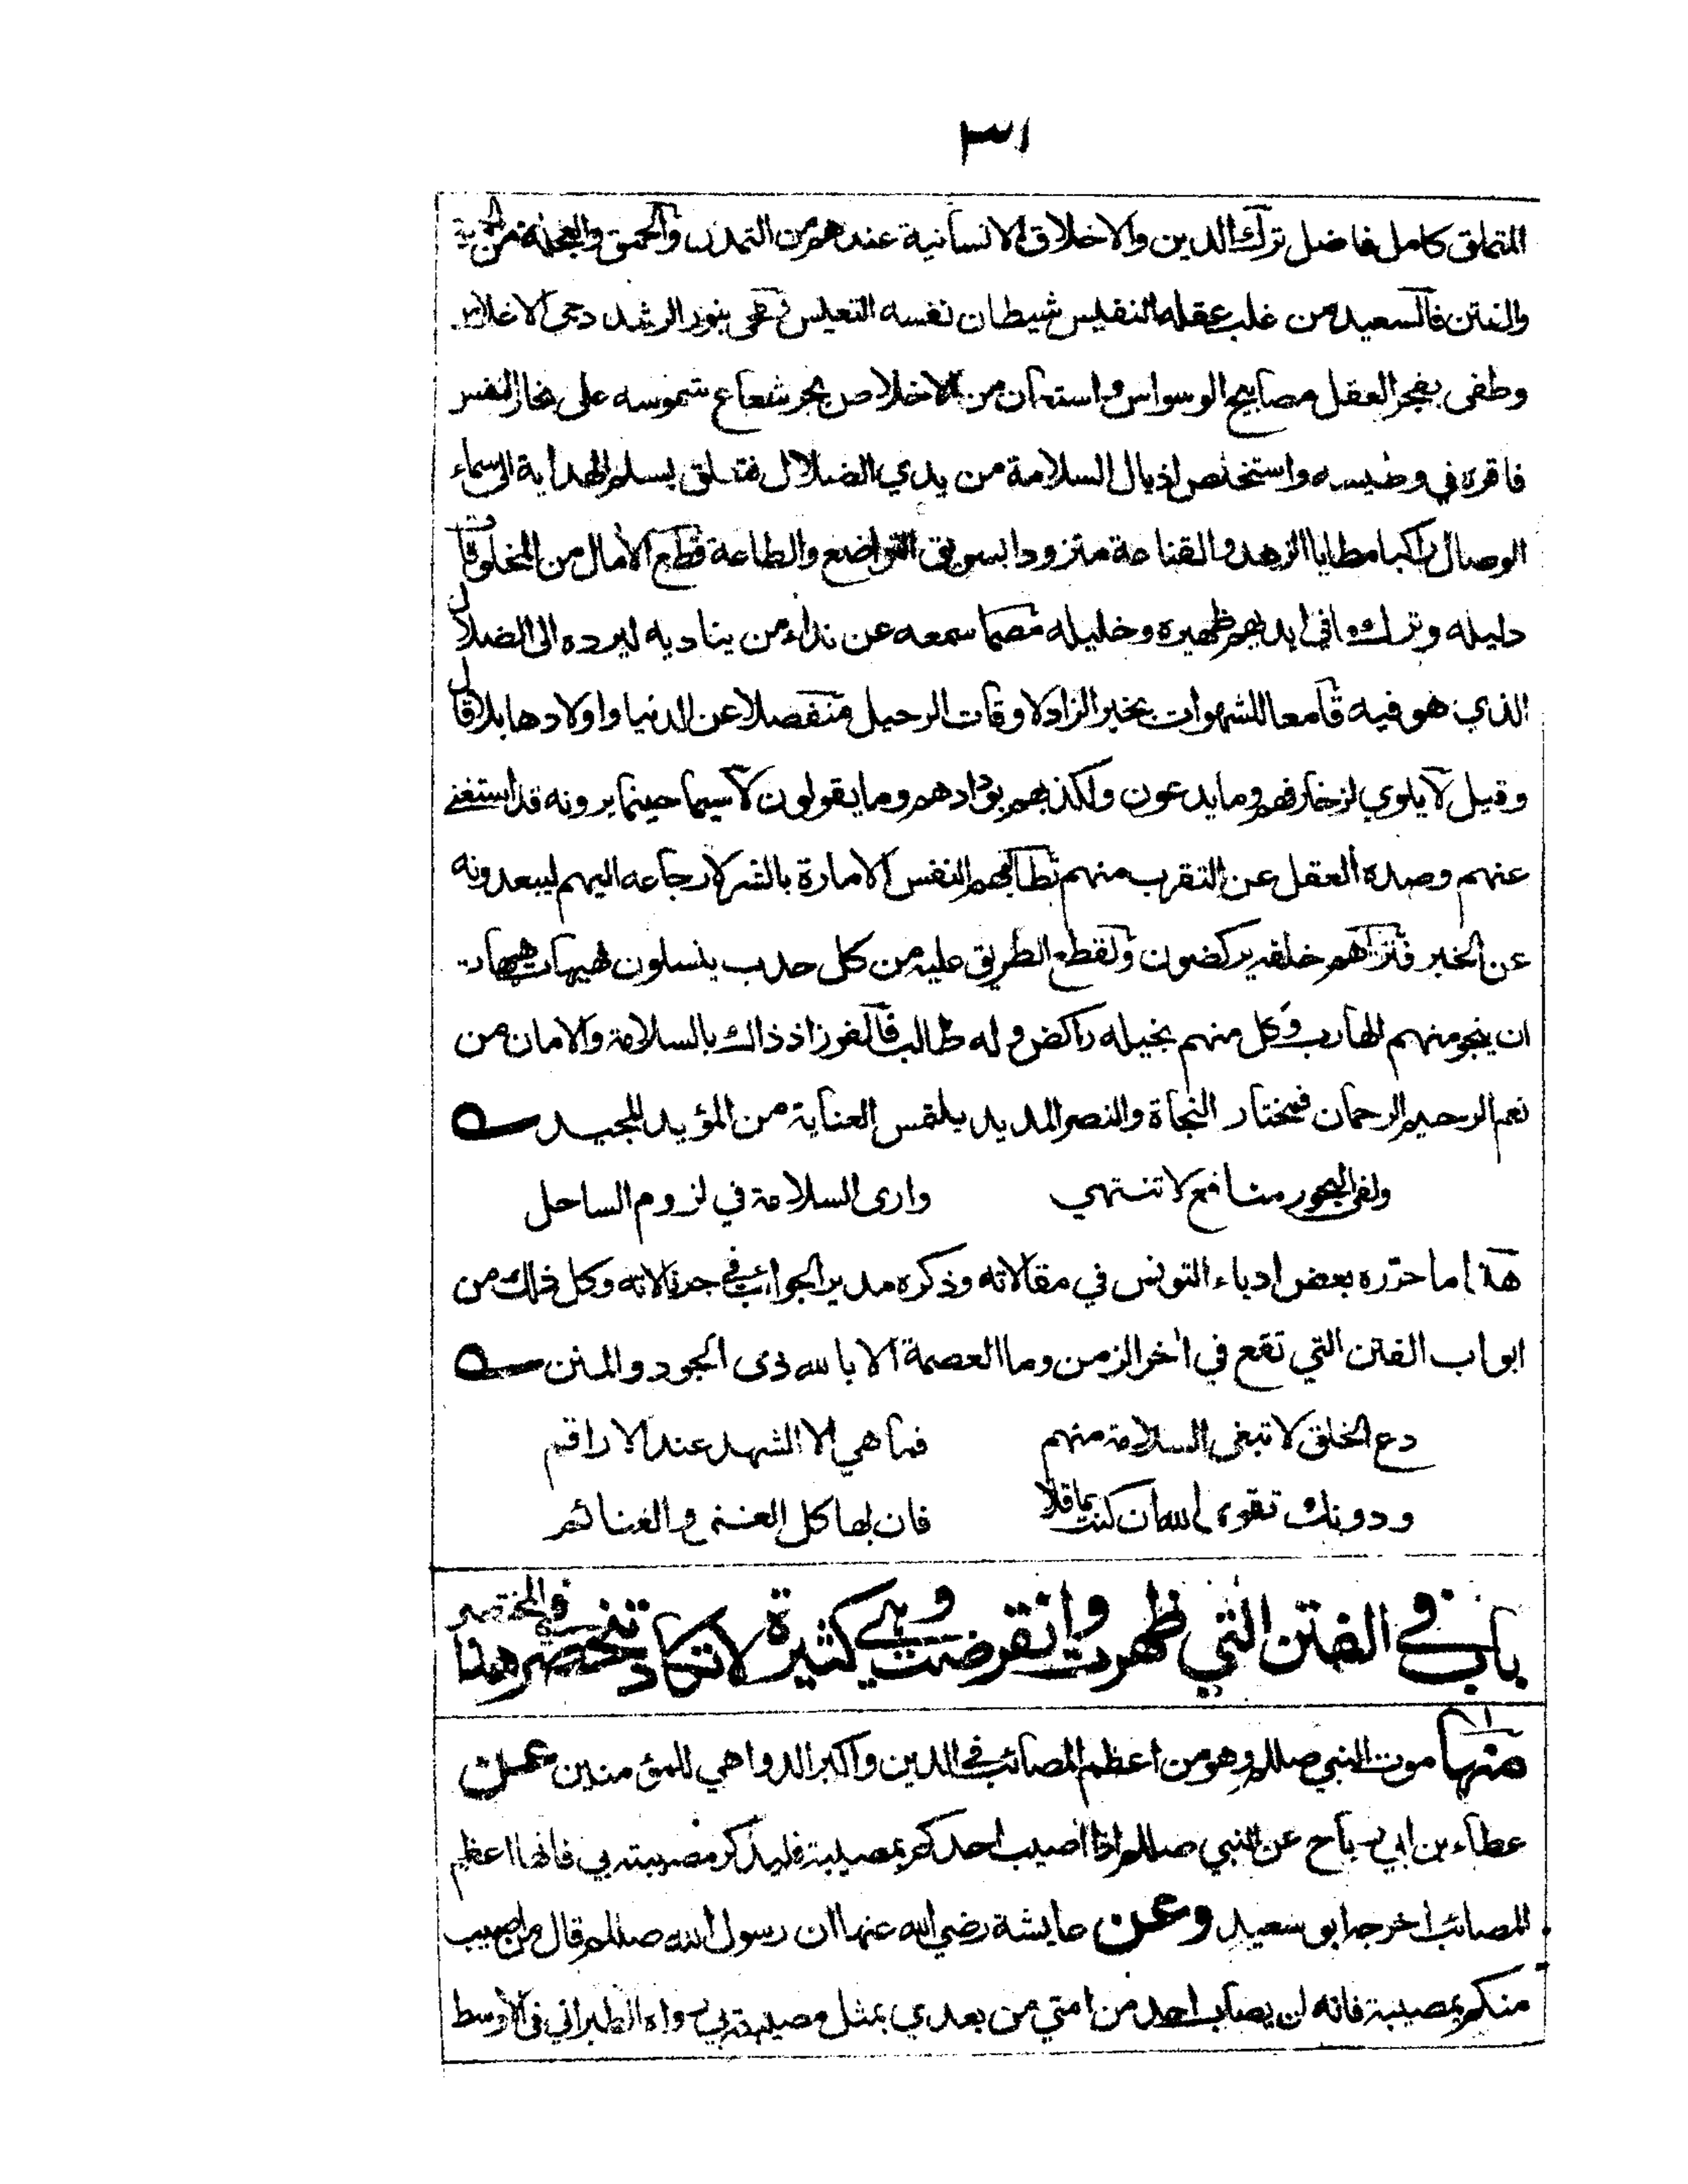 ٣١
المتملق كامل فاضل ترك الدين والاخلاق الانسانية عندهم من التمدن والحمق والعجلة من
والفتن فالسعيد من غلب عقله النفيس شيطان نفسه التعيس فمحى بنور الرشد دجى الاغلاس
وطفى بفجر العقل مصابيح الوسواس واستعان من الاخلاص بحر شعاع شموسه على بخار النفس
فاقره في وطيسه واستخلص اذيال السلامة من يدي الضلال فتسلق بسلم الهداية الى سماء
الوصال راكبا مطايا الزهد والقناعة متزودا بسويق التواضع والطاعة قطع الآمال من المخلوقات
دليله وترك ما في ايديهم ظهيره وخليله مصما سمعه عن نداء من يناديه ليرده الى الضلال
الذي هو فيه قامعا للشهوات بخير الزاد لاوقات الرحيل منفصلا عن الدنيا واولادها بلا قال
وقيل لا يلوي لزخارفهم وما يدعون ولكذبهم بودادهم وما يقولون لا سيما حينما يرونه قد استغنى
عنهم وصده العقل عن التقرب منهم تطالبهم النفس الامارة بالشر لارجاعه اليهم ليبعدونه
عن الخير فتراهم خلفه يركضون ولقطع الطريق عليه من كل حدب ينسلون هيهات هيهات
ان ينجو منهم الهارب وكل منهم بخيله راكض وله طالب فالفوز اذ ذاك بالسلامة والامان من
نعم الرحيم الرحمان فيختار النجاة والنصر المديد يلتمس العناية من المؤيد المجيد
ولفي البحور منافع لا تنتهي وارى السلامة في لزوم الساحل
هذا ما حرره بعض ادباء التونس في مقالاته وذكره مدير الجوائب في جرنالاته وكل ذلك من
ابواب الفتن التي تقع في اخر الزمن وما العصمة الا بالله ذى الجود والمنن
دع الخلق لا تبغي السلامة منهم فما هي الا الشهد عند الاراقم
ودونك تقوى الله ان كنت عاقلا فان بها كل الغنى والغنائم
باب في الفتن التي ظهرت وانقرضت وهي كثيرة لا تكاد تنحصر في المختصر هذا
منها موت النبي صللم وهو من اعظم المصائب في الدين واكبر الدواهي للمؤمنين عن
عطاء بن ابي رباح عن النبي صللم اذا اصيب احدكم بمصيبة فليذكر مصيبته بي فانها اعظم
المصائب اخرجه ابو سعيد وعن عايشة رضي الله عنها ان رسول الله صللم قال من اصيب
منكم بمصيبة فانه لن يصاب احد من امتي من بعدي بمثل مصيبته بي رواه الطبراني في الاوسط